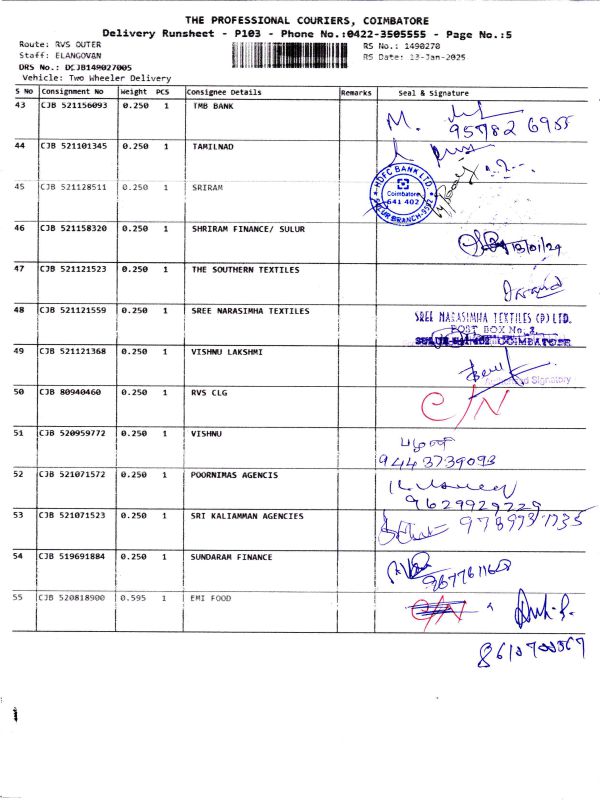 THE PROFESSIONAL COURIERS, COIMBATORE
Delivery Runsheet - P103 - Phone No.:0422-3505555 - Page No.:5
Route: RVS OUTER RS No.: 1490270
Staff: ELANGOVAN RS Date: 13-Jan-2025
DRS No.: DCJB149027005
Vehicle: Two Wheeler Delivery
S No Consignment No Weight PCS Consignee Details Remarks Seal & Signature
43 CJB 521156093 0.250 1 TMB BANK
M.
95782 6955
44 CJB 521101345 0.250 1 TAMILNAD
HDFC BANK LTD.
Coimbatore
641 402
SULUR BRANCH
45 CJB 521128511 0.250 1 SRIRAM
46 CJB 521158320 0.250 1 SHRIRAM FINANCE/ SULUR
13/01/29
47 CJB 521121523 0.250 1 THE SOUTHERN TEXTILES
48 CJB 521121559 0.250 1 SREE NARASIMHA TEXTILES
SREE NARASIMHA TEXTILES (P) LTD.
POST BOX No. 2
SULUR-641 402 COIMBATORE
49 CJB 521121368 0.250 1 VISHNU LAKSHMI
Authorised Signatory
50 CJB 80940460 0.250 1 RVS CLG
C/N
51 CJB 520959772 0.250 1 VISHNU
9443739093
52 CJB 521071572 0.250 1 POORNIMAS AGENCIS
9629929229
53 CJB 521071523 0.250 1 SRI KALIAMMAN AGENCIES
54 CJB 519691884 0.250 1 SUNDARAM FINANCE
55 CJB 520818900 0.595 1 EMI FOOD
C/N